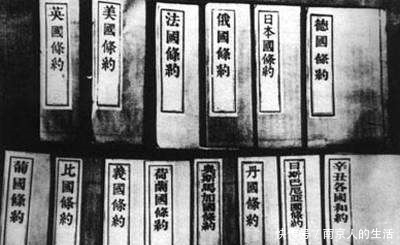 英國條約
美國條約
法國條約
俄國條約
日本國條約
德國條約
葡國條約
比國條約
義國條約
荷蘭國條約
奧斯馬加國條約
丹國條約
日斯巴尼亞國條約
辛丑各國和約
南京人的生活